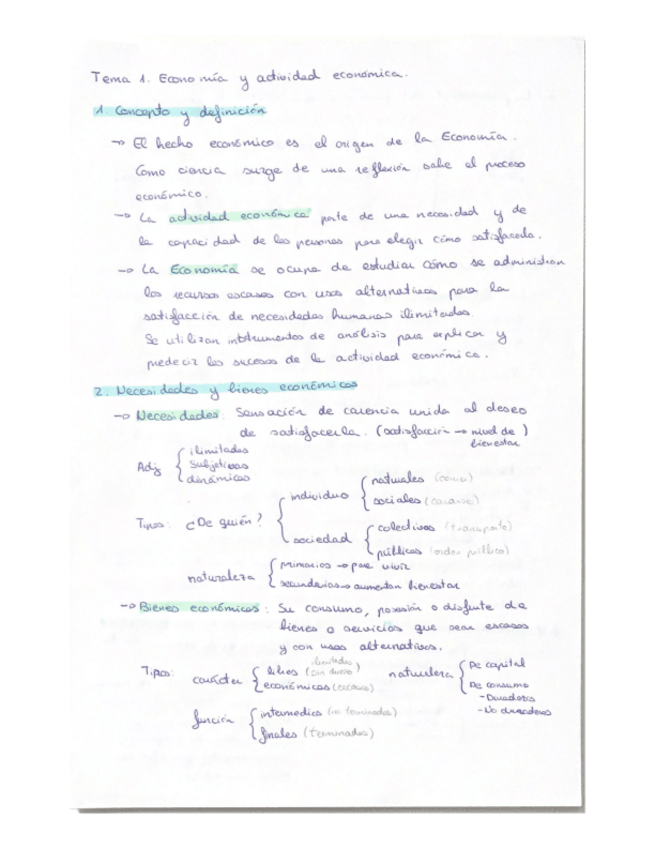 Tema 1. Economía y actividad económica.
1. Concepto y definición
→ El hecho económico es el origen de la Economía.
Como ciencia surge de una reflexión sobe el proceso
económico.
→ La actividad económica parte de una necesidad y de
la capacidad de las personas para elegir cómo satisfacerla.
→ La Economía se ocupa de estudiar cómo se administran
los recursos escasos con usos alternativos para la
satisfacción de necesidades humanas ilimitadas.
Se utilizan instrumentos de análisis para explicar y
predecir los sucesos de la actividad económica.
2. Necesidades y bienes económicos
→ Necesidades: Sensación de carencia unida al deseo
de satisfacerla. (satisfacción → nivel de )
bienestar
Adj { ilimitadas
subjetivas
dinámicas
Tipos: ¿De quién? { individuo { naturales (comer)
sociales (casarse)
sociedad { colectivas (transporte)
públicas (orden público)
naturaleza { primarias → para vivir
secundarias → aumentan bienestar
→ Bienes económicos: Su consumo, posesión o disfrute de
bienes o servicios que sean escasos
y con usos alternativos.
Tipos: carácter { libres (ilimitados sin dueño)
económicos (escasos)
naturaleza { De capital
De consumo
- Duraderos
- No duraderos
función { intermedios (no terminados)
finales (terminados)